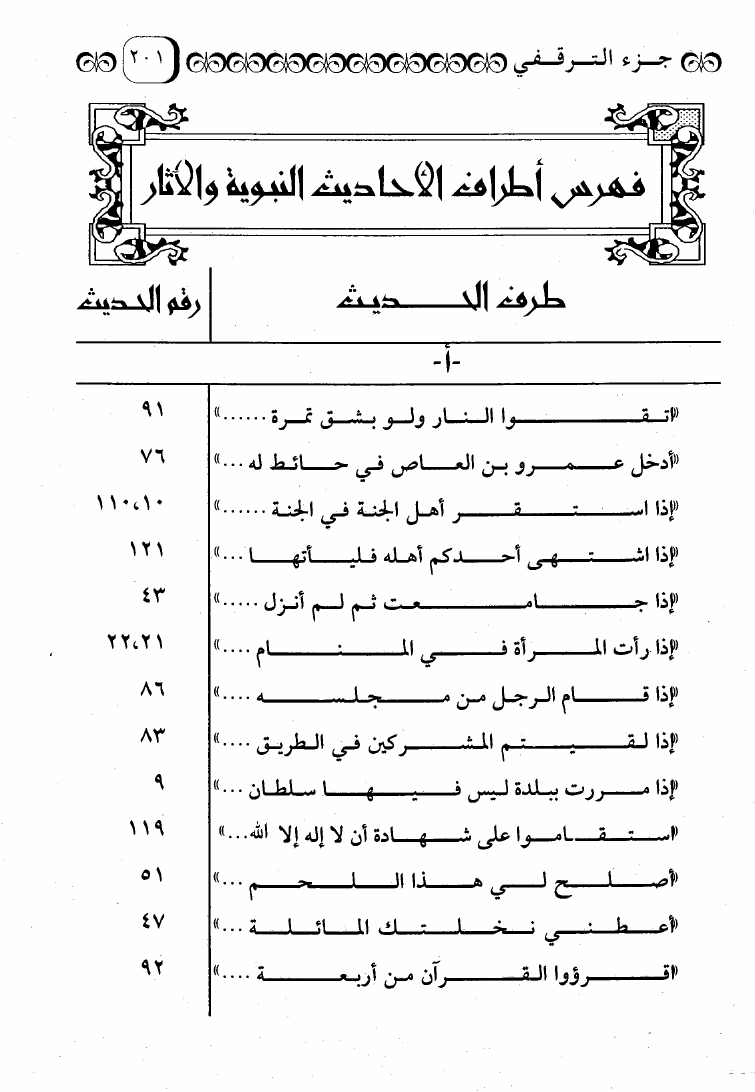 جزء الترقفي ٢٠١
فهرس أطراف الأحاديث النبوية والآثار
طرف الحديث رقم الحديث
-أ-
«اتقوا النار ولو بشق تمرة ......» ٩١
«أدخل عمرو بن العاص في حائط له ...» ٧٦
«إذا استقر أهل الجنة في الجنة ......» ١١٠،١٠
«إذا اشتهى أحدكم أهله فليأتها ...» ١٢١
«إذا جامعت ثم لم أنزل .....» ٤٣
«إذا رأت المرأة في المنام ....» ٢٢،٢١
«إذا قام الرجل من مجلسه ....» ٨٦
«إذا لقيتم المشركين في الطريق ....» ٨٣
«إذا مررت ببلدة ليس فيها سلطان ...» ٩
«استقاموا على شهادة أن لا إله إلا الله...» ١١٩
«أصلح لي هذا اللحم ...» ٥١
«أعطني نخلتك المائلة ...» ٤٧
«اقرؤوا القرآن من أربعة ....» ٩٢